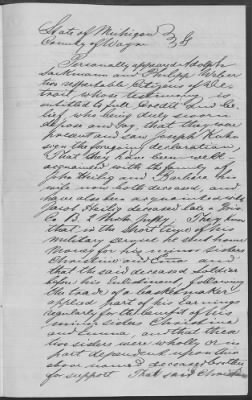 State of Michigan
County of Wayne } SS
Personally appeared Adolph
and Philipp Weber
two respectable Citizens of De-
troit whose testimony is
entitled to full Credit and be-
lief, who being duly sworn
depose and say, that they were
present and saw Joseph Kuhn
sign the foregoing declaration
That they have been well
acquainted with the family of
John and Barbara his
wife now both deceased, and
have also been acquainted with
Jacob deceased late a
Co B 2 Mich Infty. They know
that in the short time of his
military service he sent home
money for his minor sisters
Christina and Emma and
that the said deceased soldier
before his Enlistment following
the trade of a
applied part of his Earnings
regularly for the benefit of his
minor sisters Christina
and Emma, and that these
two sisters were wholly or in
part dependent upon the
above named deceased brother
for support That said Christina